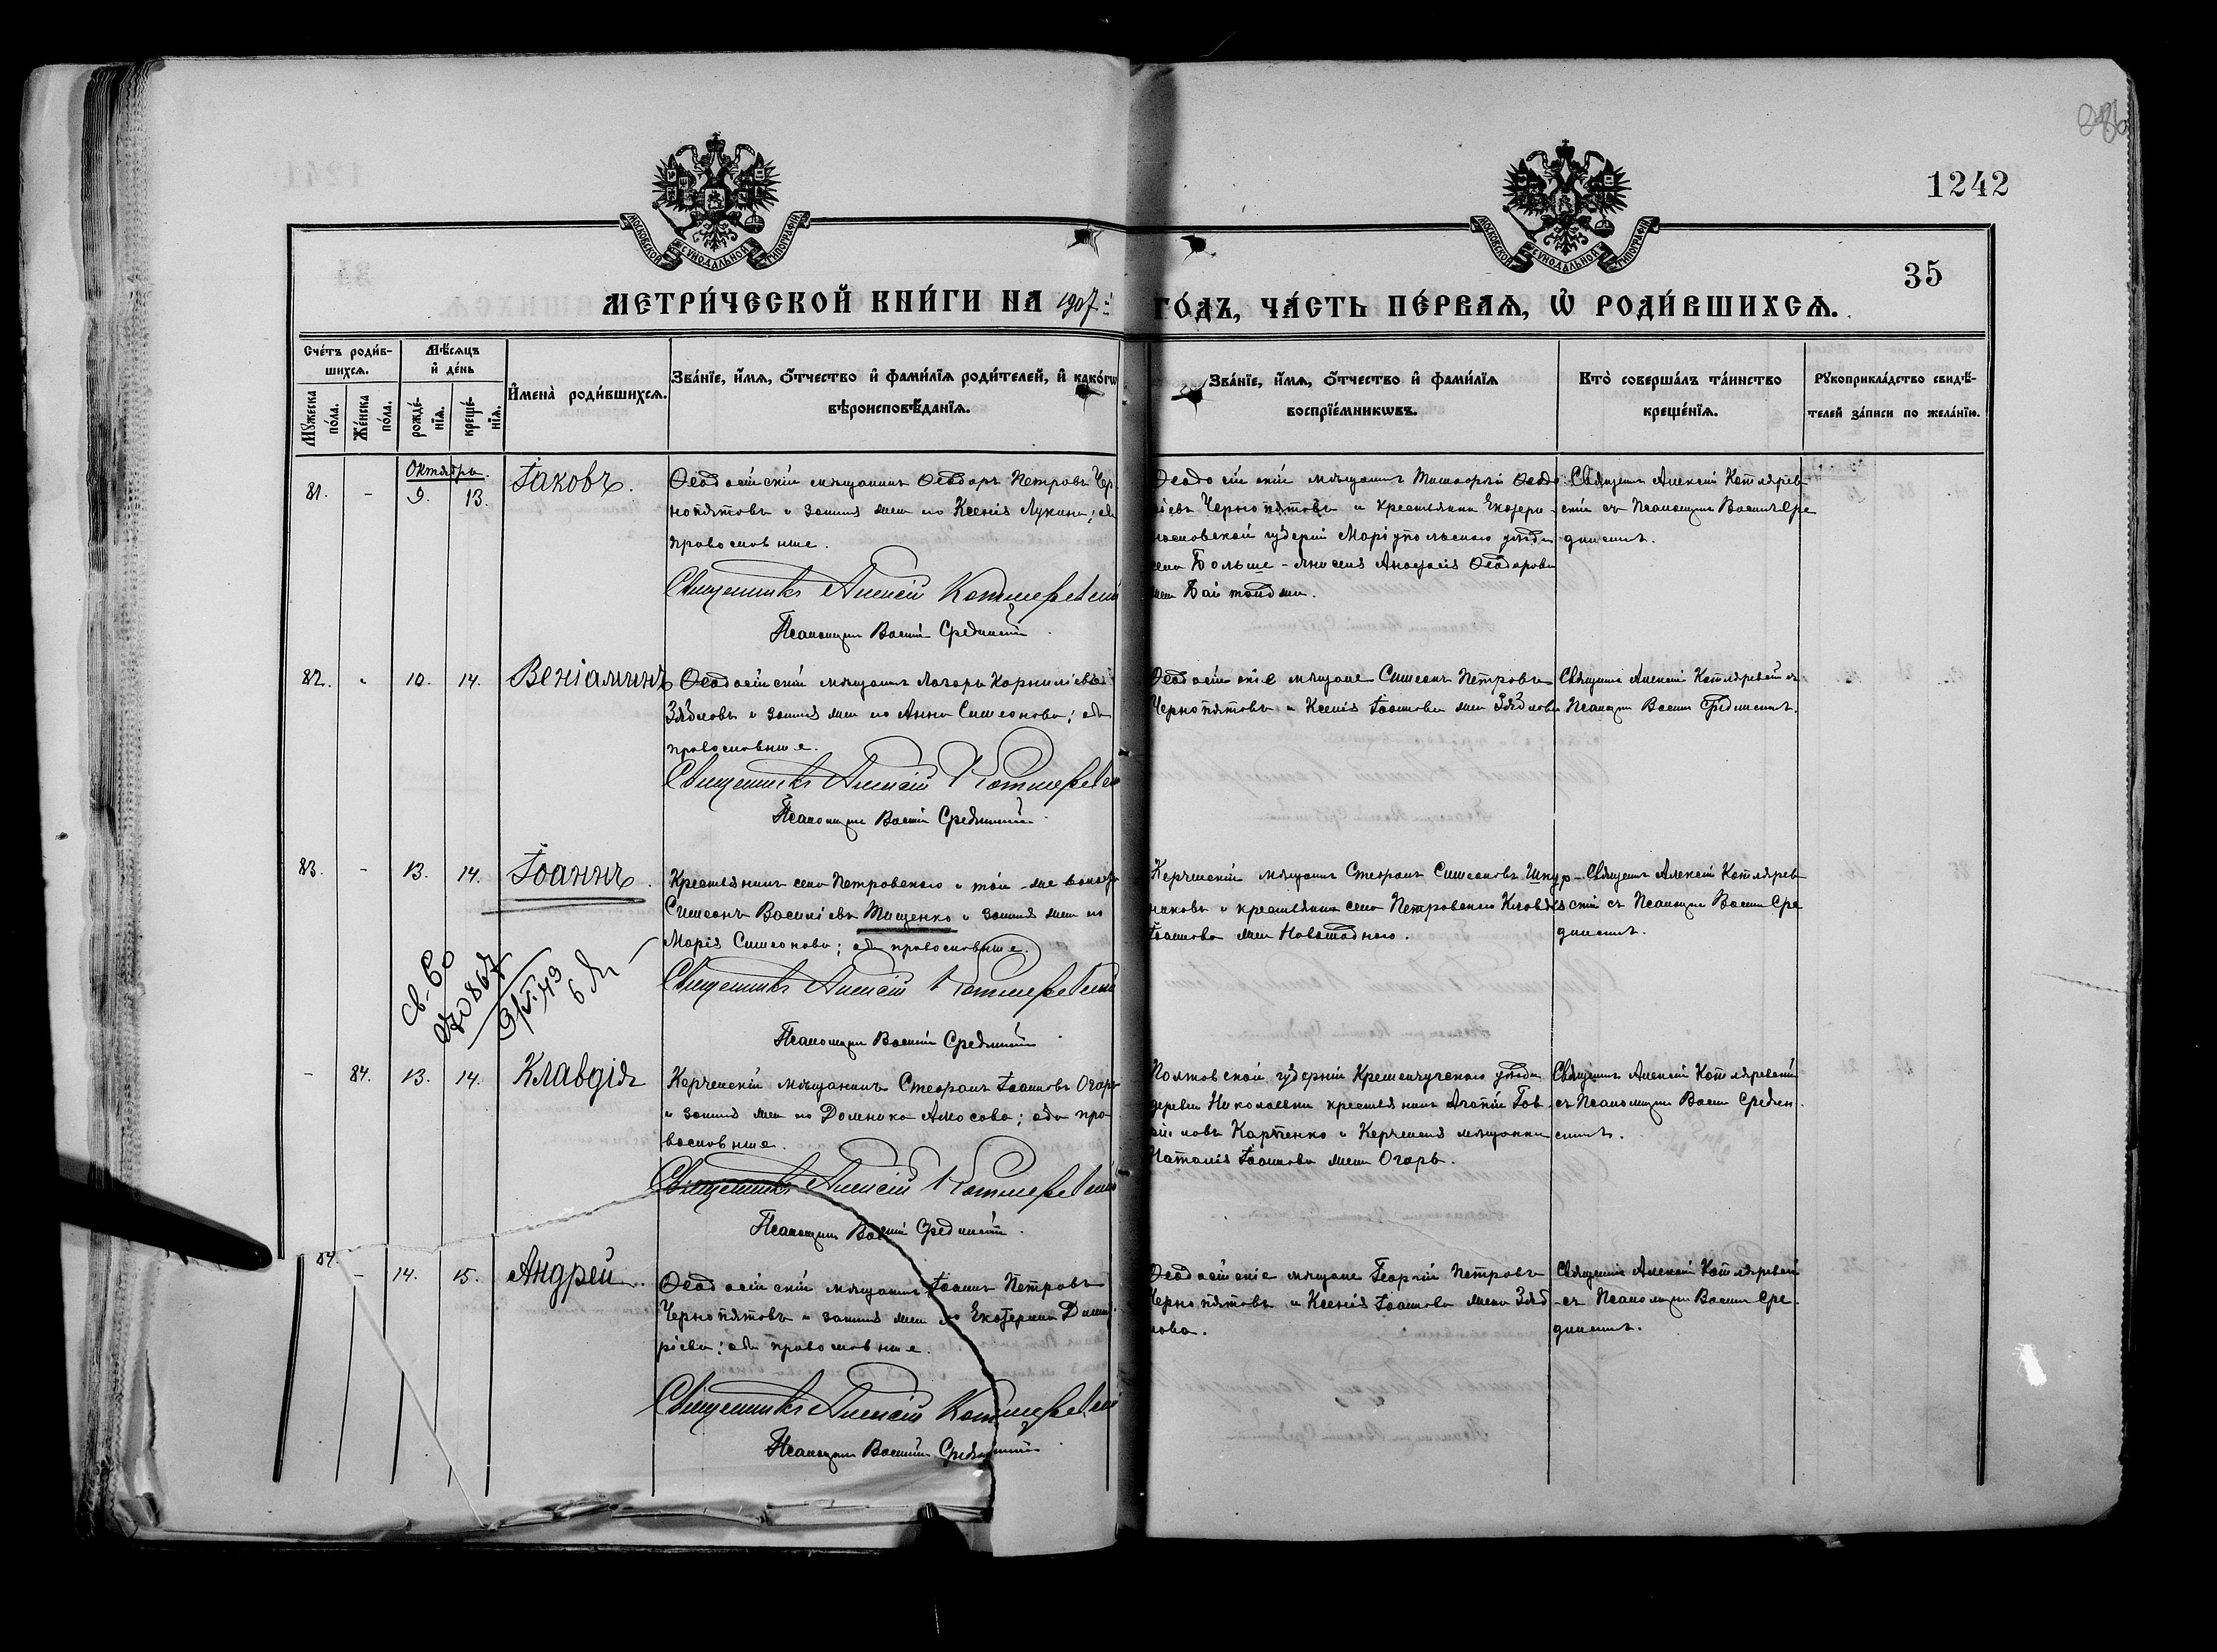 1242
35
МОСКОВСКОЙ СѴНОДАЛЬНОЙ ТИПОГРАФІИ
МОСКОВСКОЙ СѴНОДАЛЬНОЙ ТИПОГРАФІИ
МЕТРИ́ЧЕСКОЙ КНИ́ГИ НА 1907 ГО́ДЪ, ЧА́СТЬ ПЕ́РВАѦ, Ѡ РОДИ́ВШИХСѦ.
Сче́тъ роди́в-
шихсѧ.
Мꙋжеска по́ла.
Же́нска по́ла.
Мѣ́сѧцъ
и҆ де́нь
рожде́-
нїѧ.
креще́-
нїѧ.
И҆мена̀ роди́вшихсѧ.
Зва́нїе, и҆́мѧ, ѻ҆́тчество и҆ фами́лїѧ роди́телей, и҆ како́гѡ
вѣроисповѣ́данїѧ.
Зва́нїе, и҆́мѧ, ѻ҆́тчество и҆ фами́лїѧ
воспрїе́мникѡвъ.
Кто̀ соверша́лъ та́инство
креще́нїѧ.
Рꙋкоприкла́дство свидѣ́-
телей за́писи по жела́нїю.
Октябрь.
81. - 9. 13. Іаковъ.
Ѳеодосійскій мѣщанинъ Ѳеодоръ Петровъ Чер-
нопятовъ и законная жена его Ксенія Лукина; оба
православные.
Священникъ Алексій Котляревскій
Псаломщикъ Василій Срединскій
Ѳеодосійскій мѣщанинъ Тимоѳей Ѳеодо-
сіевъ Чернопятовъ и крестьянка Екатери-
нославской губерніи Маріупольскаго уѣзда
села Больше-Янисоля Анастасія Ѳеодорова
Священникъ Алексій Котлярев-
скій съ Псаломщикомъ Василіемъ Сре-
динскимъ.
82. - 10. 14. Веніаминъ
Ѳеодосійскій мѣщанинъ Лазарь Корниліевъ
Зябловъ и законная жена его Анна Симеонова; оба
православные.
Священникъ Алексій Котляревскій
Псаломщикъ Василій Срединскій
Ѳеодосійскіе мѣщане Симеонъ Петровъ
Чернопятовъ и Ксенія Іоаннова жена Зяблова
Священникъ Алексій Котляревскій съ
Псаломщикомъ Василіемъ Срединскимъ.
83. - 13. 14. Іоаннъ.
Крестьянинъ села Петровскаго и той-же волости
Симеонъ Василіевъ Тищенко и законная жена его
Марія Симеонова; оба православные.
Священникъ Алексій Котляревскій
Псаломщикъ Василій Срединскій
Керченскій мѣщанинъ Стефанъ Симеоновъ Шкур-
никовъ и крестьянка села Петровскаго Клавдія
Іоаннова жена
Священникъ Алексій Котлярев-
скій съ Псаломщикомъ Василіемъ Сре-
динскимъ.
св-во
070867
9/VI.49
- 84. 13. 14. Клавдія
Керченскій мѣщанинъ Стефанъ Іоанновъ Огарь
и законная жена его Домника Амосова; оба пра-
вославные.
Священникъ Алексій Котляревскій
Псаломщикъ Василій Срединскій
Полтовской губерніи Кременчугскаго уѣзда
деревни Николаевки крестьянинъ Агапій Гав-
риловъ Карпенко и Керченская мѣщанка
Наталія Іоаннова жена Огарь.
Священникъ Алексій Котляревскій
съ Псаломщикомъ Василіемъ Средин-
скимъ.
84. - 14. 15. Андрей.
Ѳеодосійскій мѣщанинъ Іоаннъ Петровъ
Чернопятовъ и законная жена его Екатерина Димит-
ріева; оба православные.
Священникъ Алексій Котляревскій
Псаломщикъ Василій Срединскій
Ѳеодосійскіе мѣщане Георгій Петровъ
Чернопятовъ и Ксенія Іоаннова жена Зяб-
лова.
Священникъ Алексій Котляревскій
съ Псаломщикомъ Василіемъ Сре-
динскимъ.